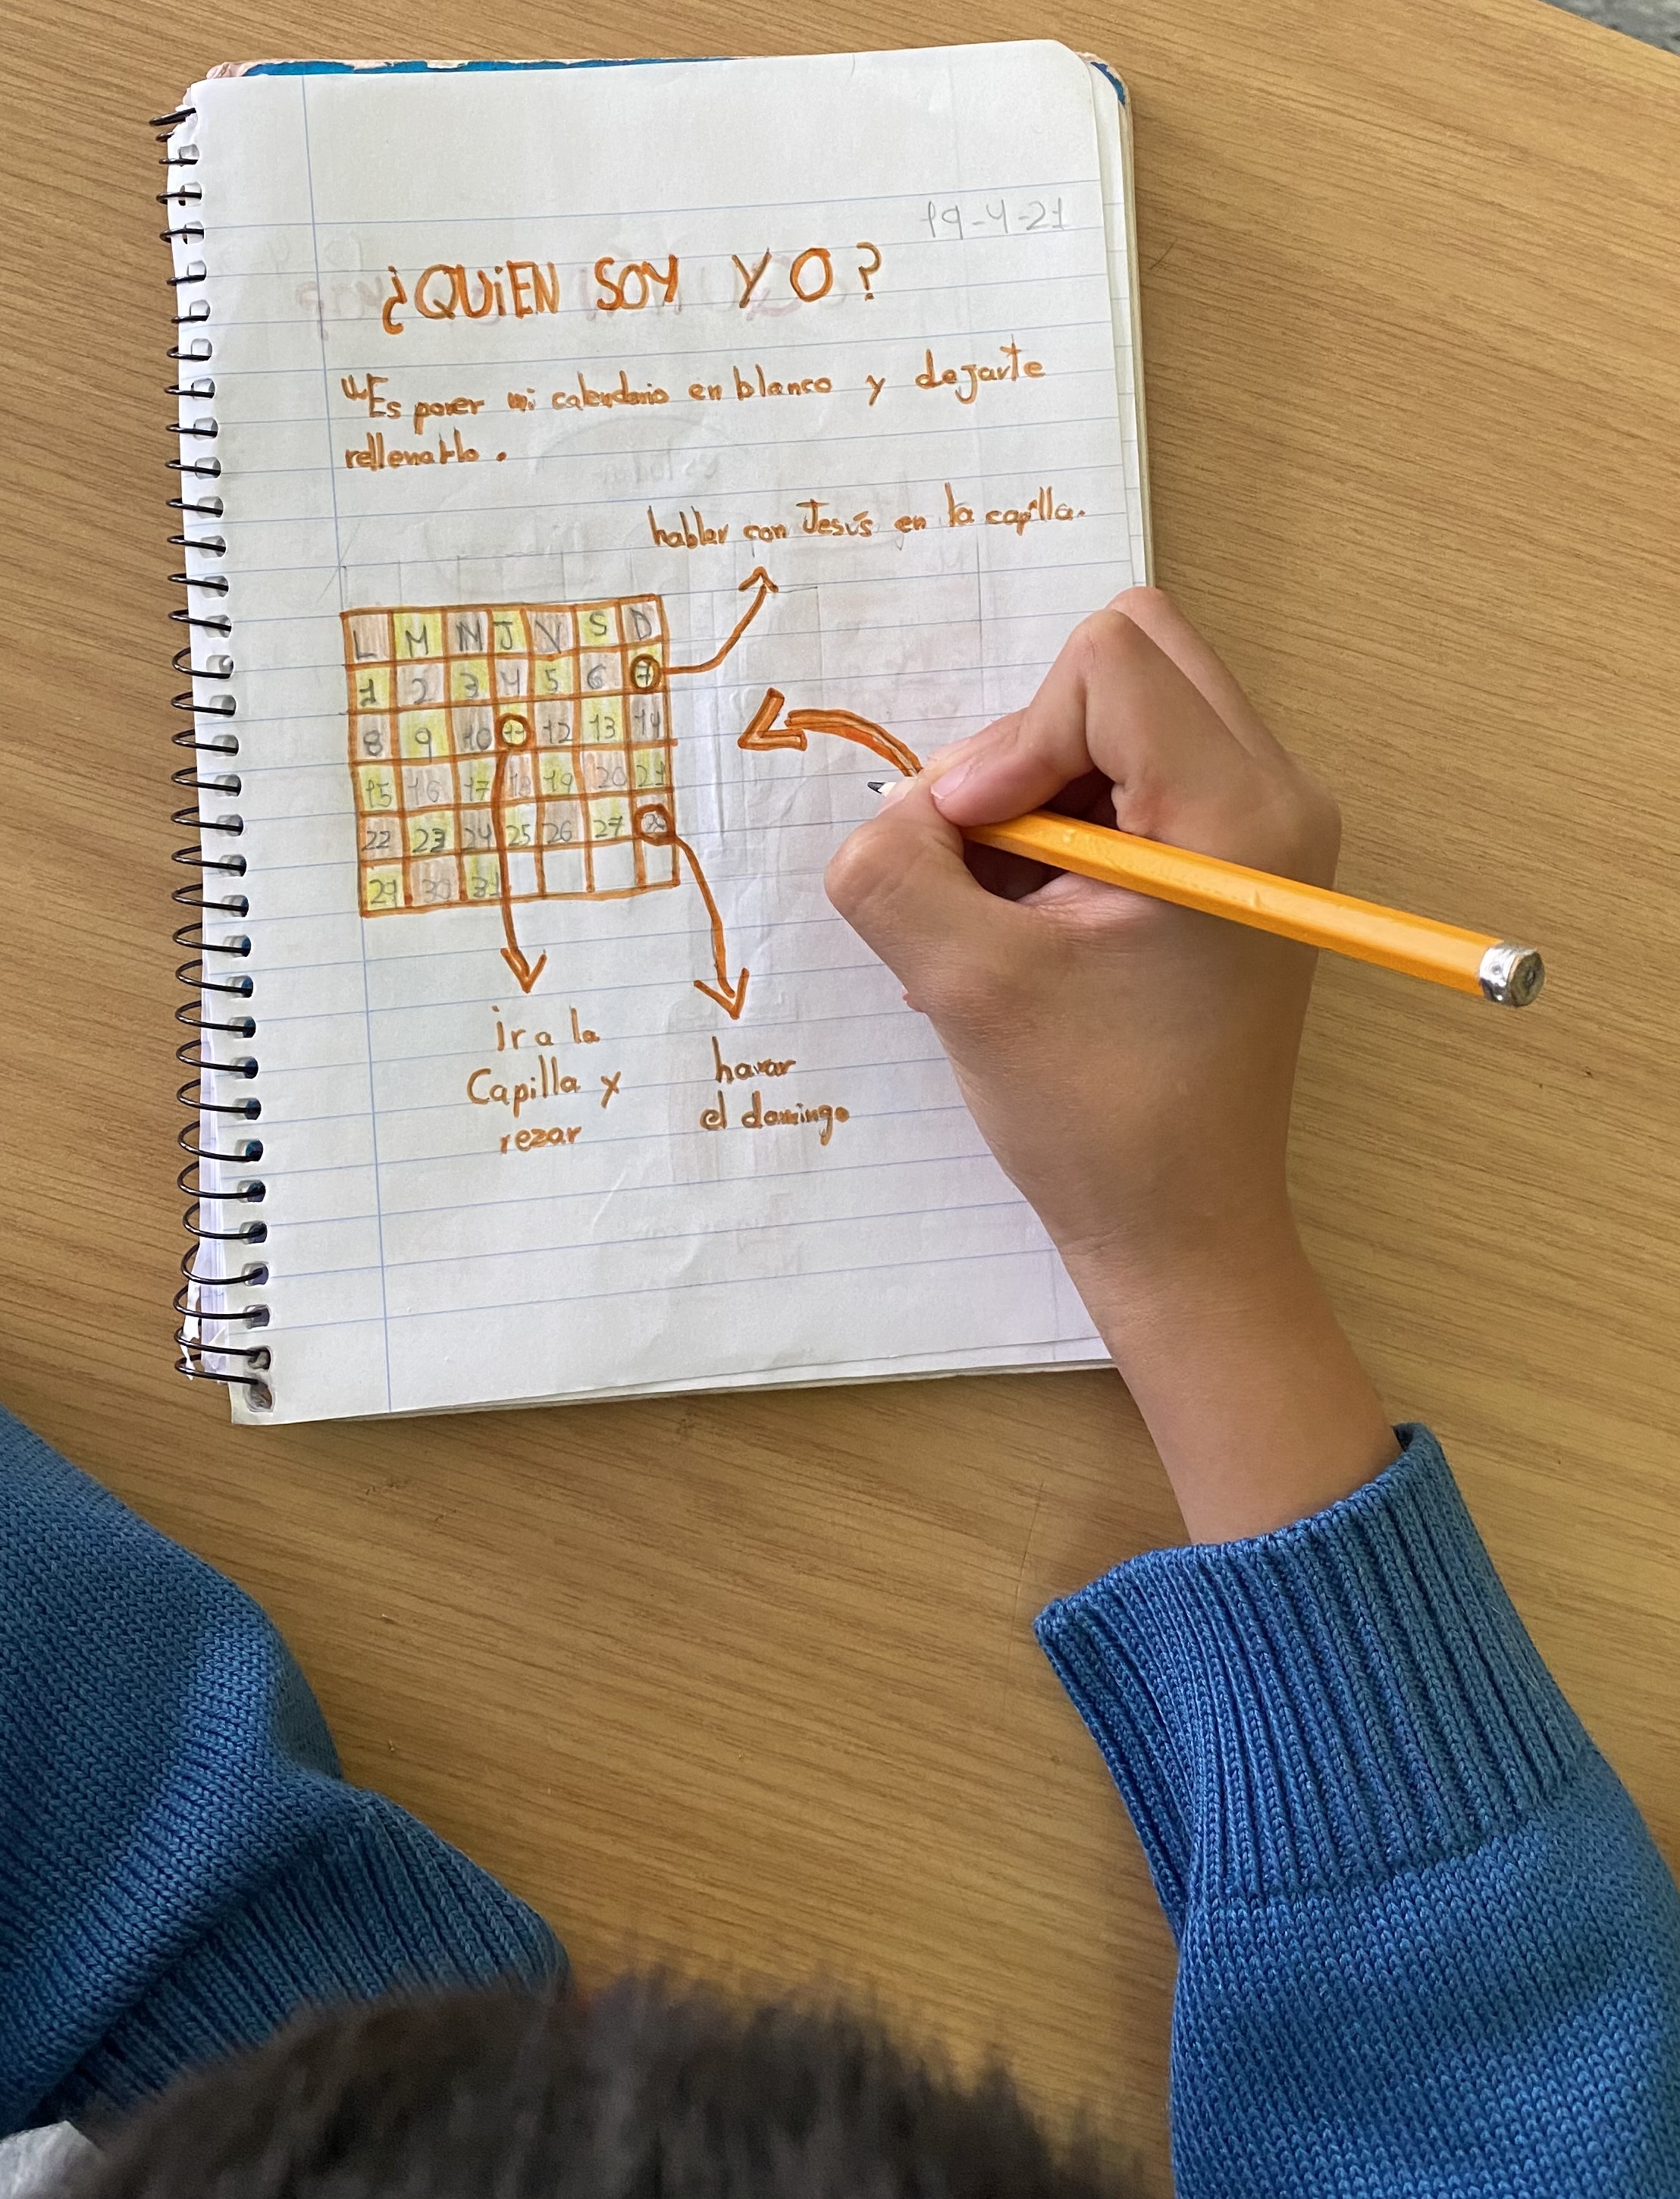 19-4-21
¿QUiEN SOY YO?
"Es poner mi calendario en blanco y dejarte
rellenarlo.
hablar con Jesús en la capilla.
L M M J V S D
1 2 3 4 5 6 7
8 9 10 11 12 13 14
15 16 17 18 19 20 21
22 23 24 25 26 27 28
29 30 31
ir a la
Capilla y
rezar
el domingo